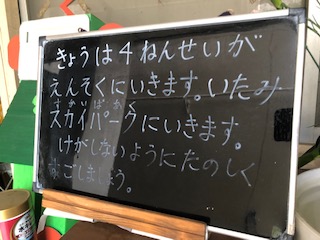 きょうは4ねんせいが
えんそくにいきます。いたみ
すかいぱあく
スカイパークにいきます。
けがしないようにたのしく
すごしましょう。